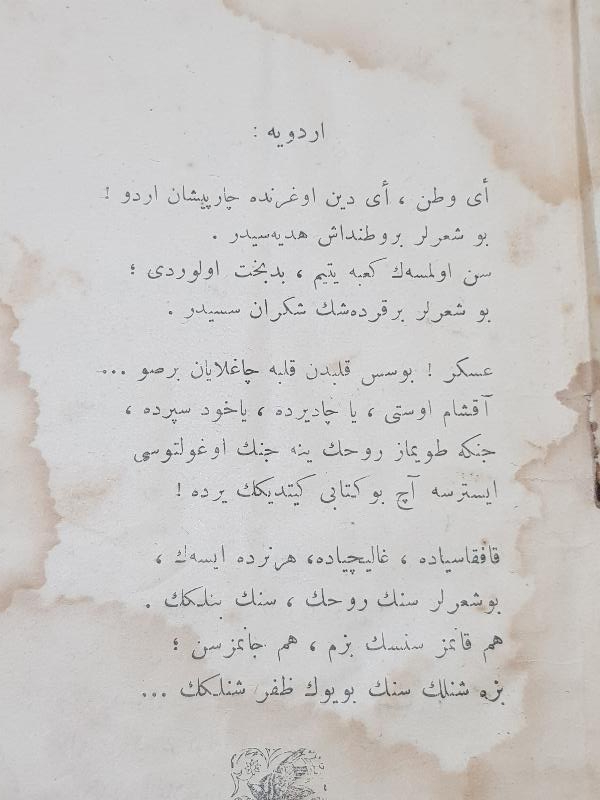 اردويه :
أى وطن ، أى دين اوغرنده چارپيشان اردو !
بو شعرلر بروطنداش هديه‌سيدر .
سن اولمسه‌ك كعبه يتيم ، بدبخت اولوردى ؛
بو شعرلر برقرده‌شك شكران سسيدر .
عسكر ! بوسس قلبدن قلبه چاغلايان برصو ...
آقشام اوستى ، يا چاديرده ، ياخود سپرده ،
جنكه طويماز روحك ينه جنك اوغولتوسى
ايسترسه آچ بوكتابى كيتديكك يرده !
قافقاسياده ، غاليچياده، هرنرده ايسه‌ك ،
بوشعرلر سنك روحك ، سنك بنلكك .
هم قانمز سنسك بزم ، هم جانمزسن ؛
بزه شنلك سنك بويوك ظفر شنلكك ...